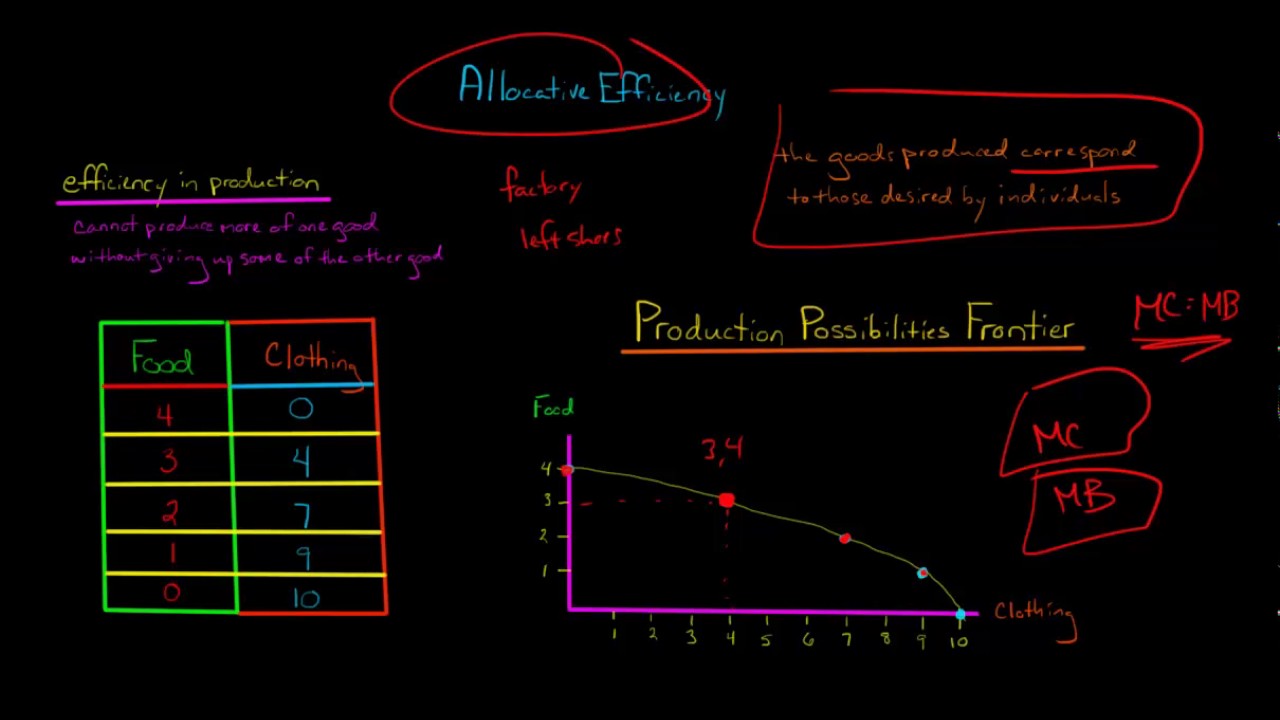 Allocative Efficiency
efficiency in production
cannot produce more of one good
without giving up some of the other good
factory
left shoes
the goods produced correspond
to those desired by individuals
Production Possibilities Frontier
MC = MB
MC
MB
Food Clothing
4 0
3 4
2 7
1 9
0 10
Food
3,4
4
3
2
1
Clothing
1 2 3 4 5 6 7 8 9 10